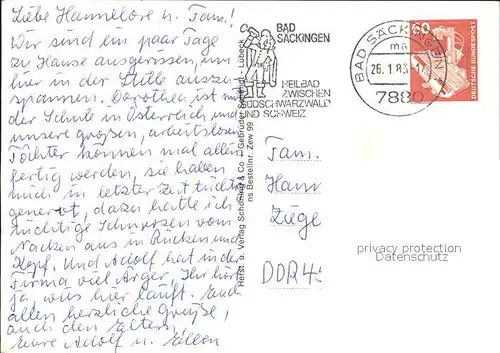 Liebe Hannelore u. Fam.!
Wir sind ein paar Tage
zu Hause ausgerissen, um
hier in der Stille auszu-
spannen. Dorothea ist mit
der Schule in Österreich und
unsere großen, arbeitslosen
Töchter können mal allein
fertig werden, sie haben
mich in letzter Zeit tüchtig
genervt, dazu hatte ich
tüchtige Schmerzen vom
Nacken aus in Rücken und
Kopf. Und Adolf hat in der
Firma viel Ärger. Ihr hört
ja was hier läuft. Euch
allen herzliche Grüße,
auch den Eltern
Eure Adolf u. Ellen
BAD
SÄCKINGEN
HEILBAD
ZWISCHEN
SÜDSCHWARZWALD
UND SCHWEIZ
BAD SÄCKINGEN 1
ma
26.1.83
7880
60
DEUTSCHE BUNDESPOST
Herst. u. Verlag Schöning & Co + Gebrüder Schmidt · Lübeck
ns Bestellnr. Zew 99
Fam.
Hann
Ziege
DDR 4
privacy protection
Datenschutz